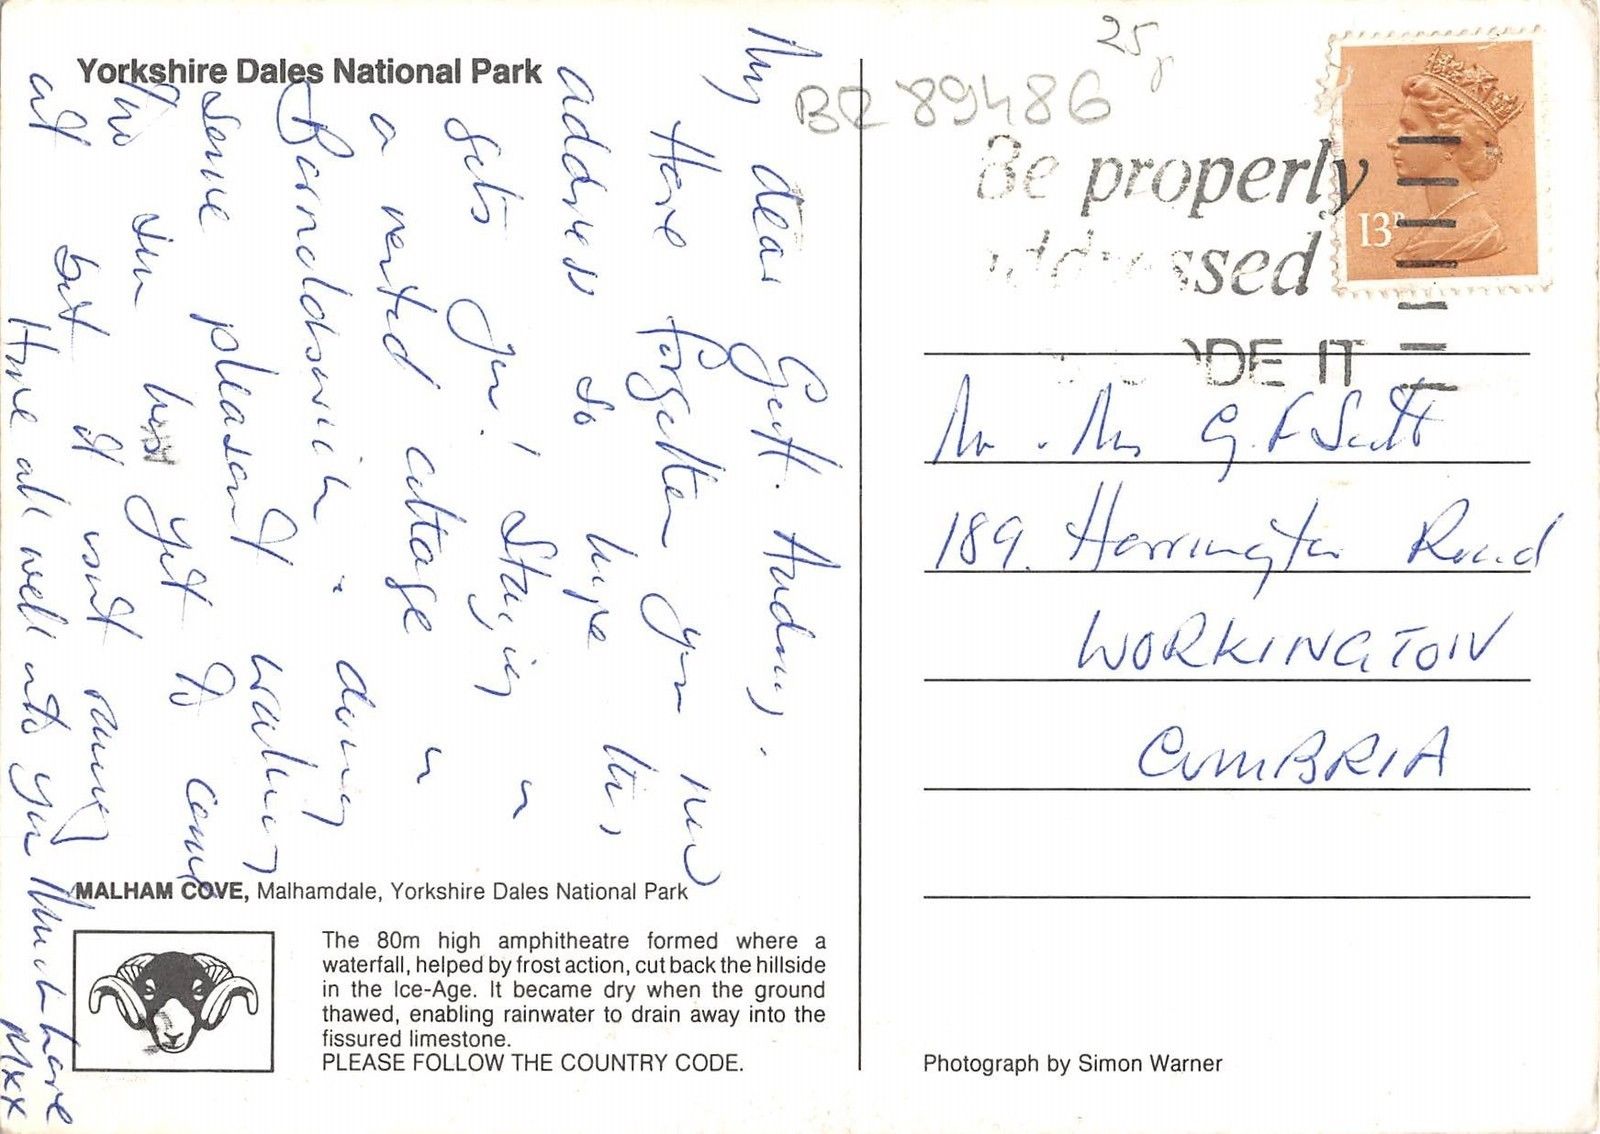 Yorkshire Dales National Park
My dear Geoff. Audrey.
Have forgotten your new
address so hope this
gets you! Staying in
a rented cottage in
Barnoldswick & doing
some pleasant walking
The sun has yet to come
out but it isn't raining
Hope all well with you Much love
Mxx
MALHAM COVE, Malhamdale, Yorkshire Dales National Park
The 80m high amphitheatre formed where a
waterfall, helped by frost action, cut back the hillside
in the Ice-Age. It became dry when the ground
thawed, enabling rainwater to drain away into the
fissured limestone.
PLEASE FOLLOW THE COUNTRY CODE.
25p
BZ 89486
Be properly
addressed
ODE IT
13P
Mr. Mrs G.F Scott
189. Harrington Road
WORKINGTON
CUMBRIA
Photograph by Simon Warner